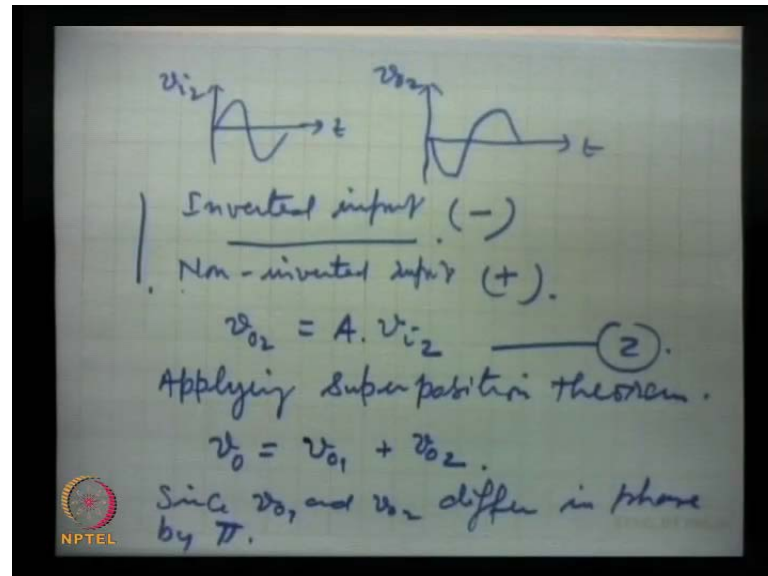 vi₂ t vo₂ t
Inverted input (-)
Non-inverted input (+).
vo₂ = A. vi₂ ——— (2).
Applying superposition theorem.
vo = vo₁ + vo₂.
Since vo₁ and vo₂ differ in phase
by π.
NPTEL